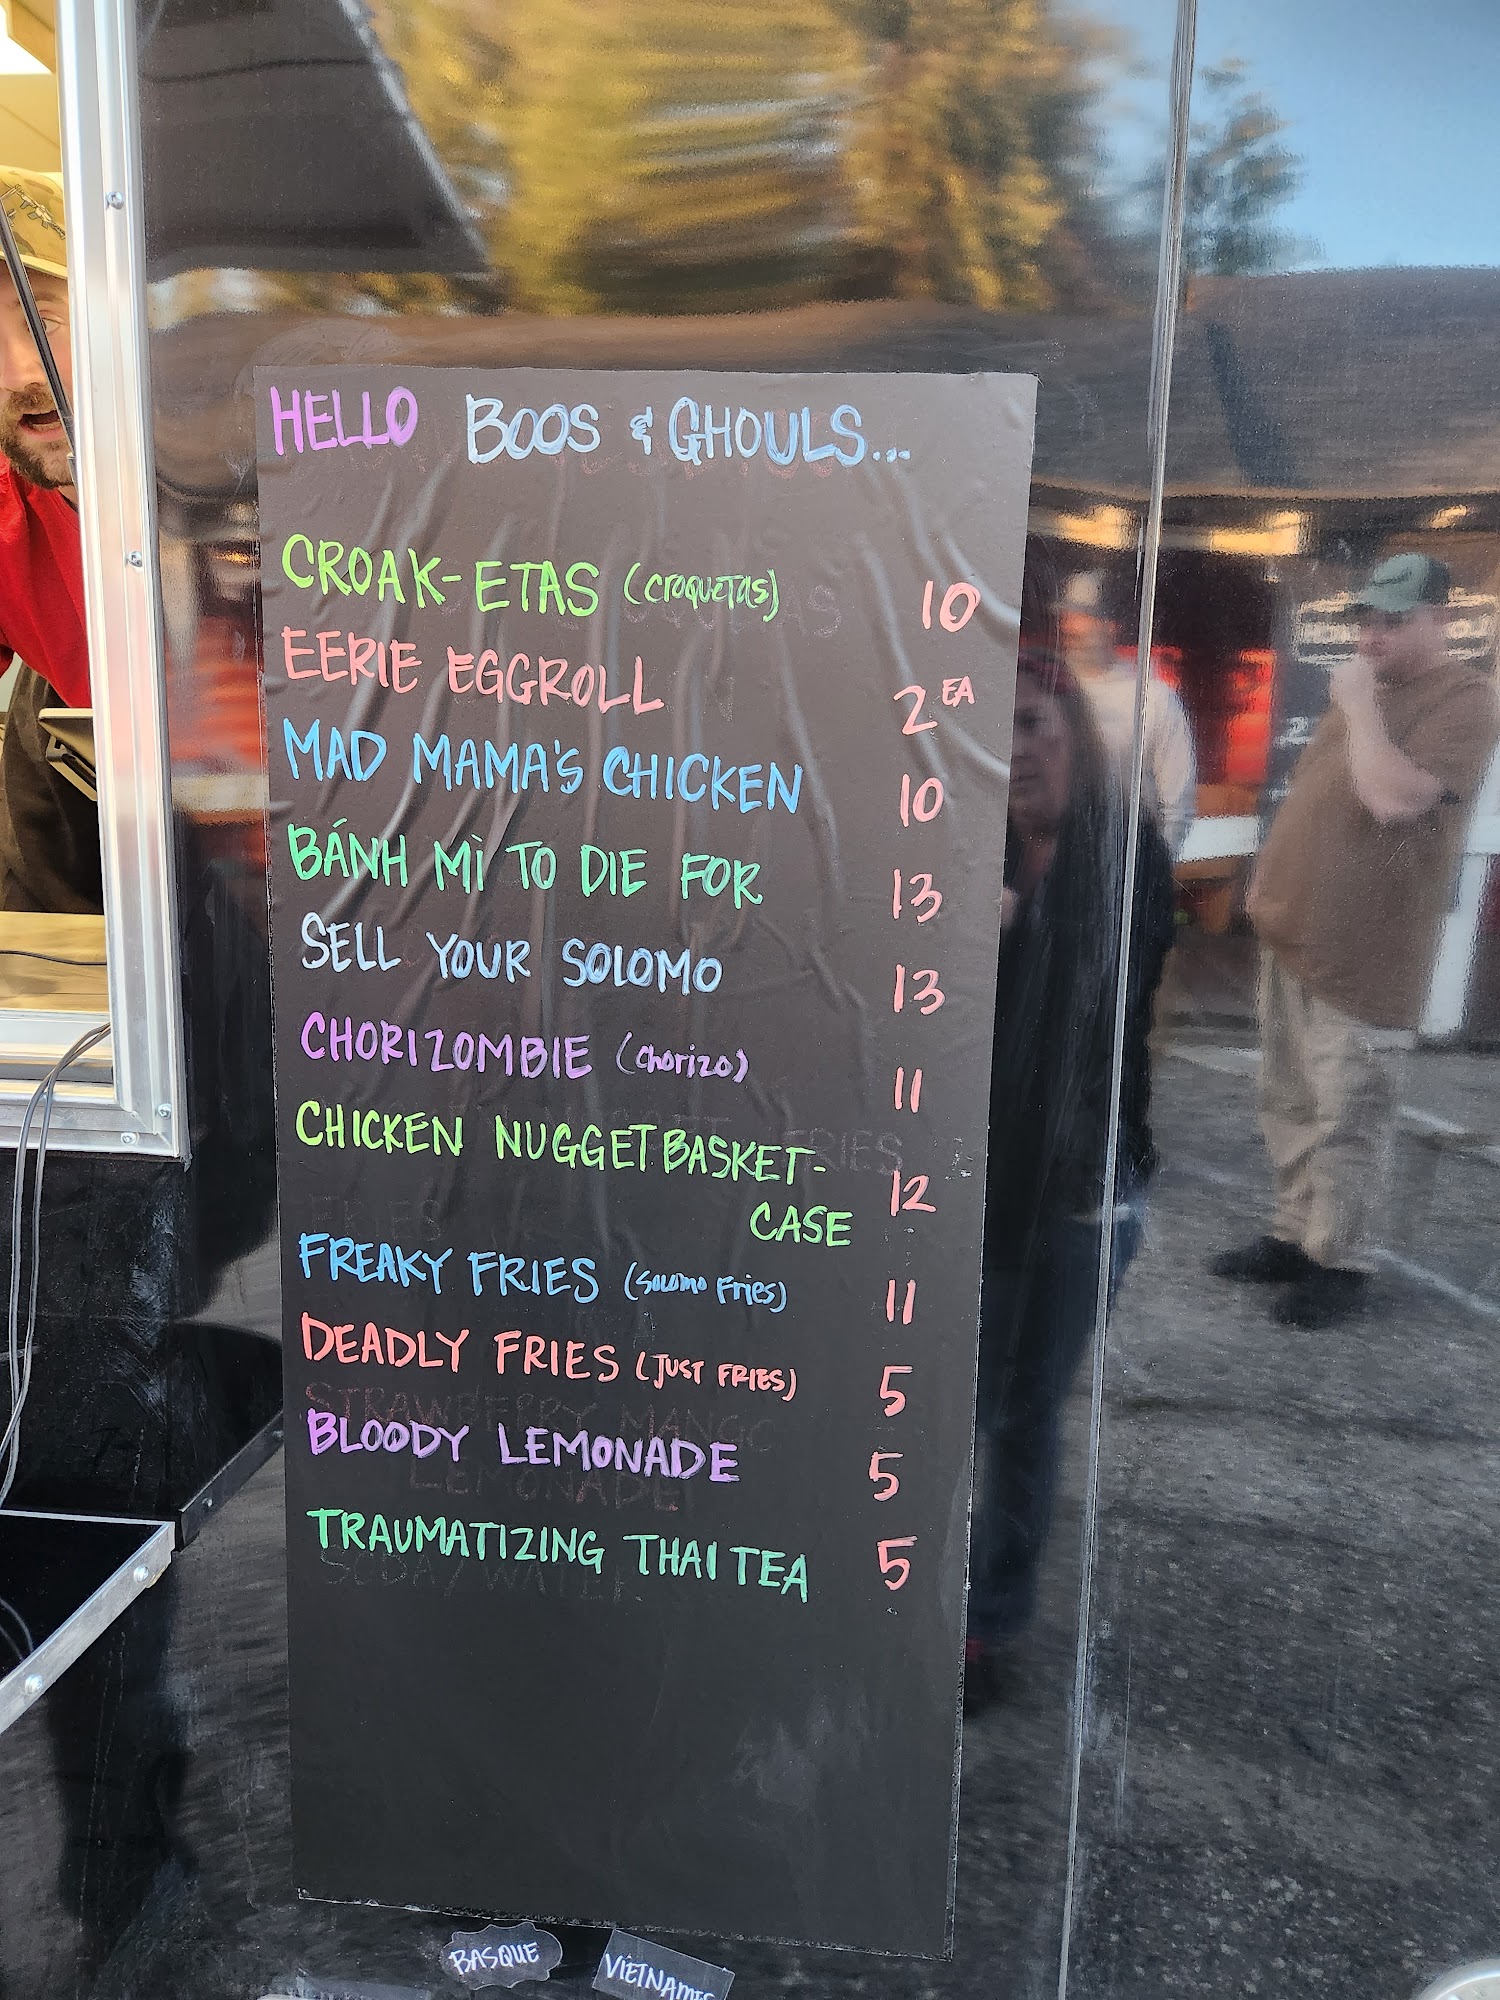 HELLO BOOS & GHOULS...
CROAK-ETAS (croquetas) 10
EERIE EGGROLL 2 EA
MAD MAMA'S CHICKEN 10
BÁNH MÌ TO DIE FOR 13
SELL YOUR SOLOMO 13
CHORIZOMBIE (chorizo) 11
CHICKEN NUGGET BASKET-
CASE 12
FREAKY FRIES (Solomo Fries) 11
DEADLY FRIES (JUST FRIES) 5
STRAWBERRY MANGO
BLOODY LEMONADE 5
LEMONADE
TRAUMATIZING THAI TEA 5
SODA/WATER
BASQUE